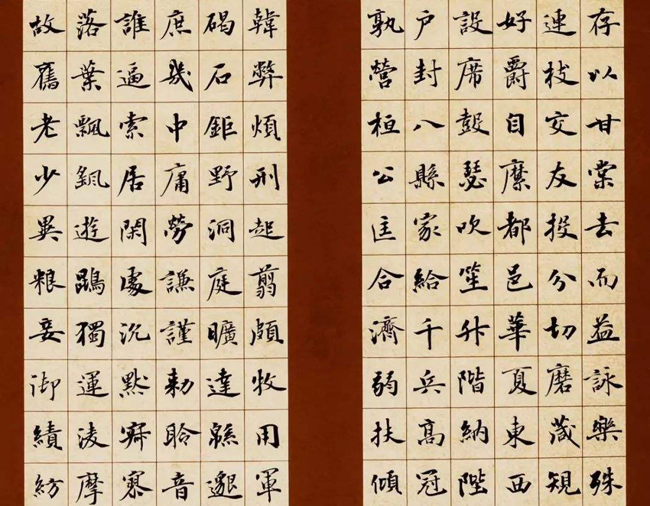 存以甘棠去而益詠樂殊
連枝交友投分切磨箴規
好爵自縻都邑華夏東西
設席鼓瑟吹笙升階納陛
户封八縣家給千兵高冠
孰營桓公匡合濟弱扶傾
韓弊煩刑起翦頗牧用軍
碣石鉅野洞庭曠遠緜邈
庶幾中庸勞謙謹勅聆音
誰逼索居閑處沉默寂寥
落葉飄颻遊鵾獨運凌摩
故舊老少異糧妾御績紡